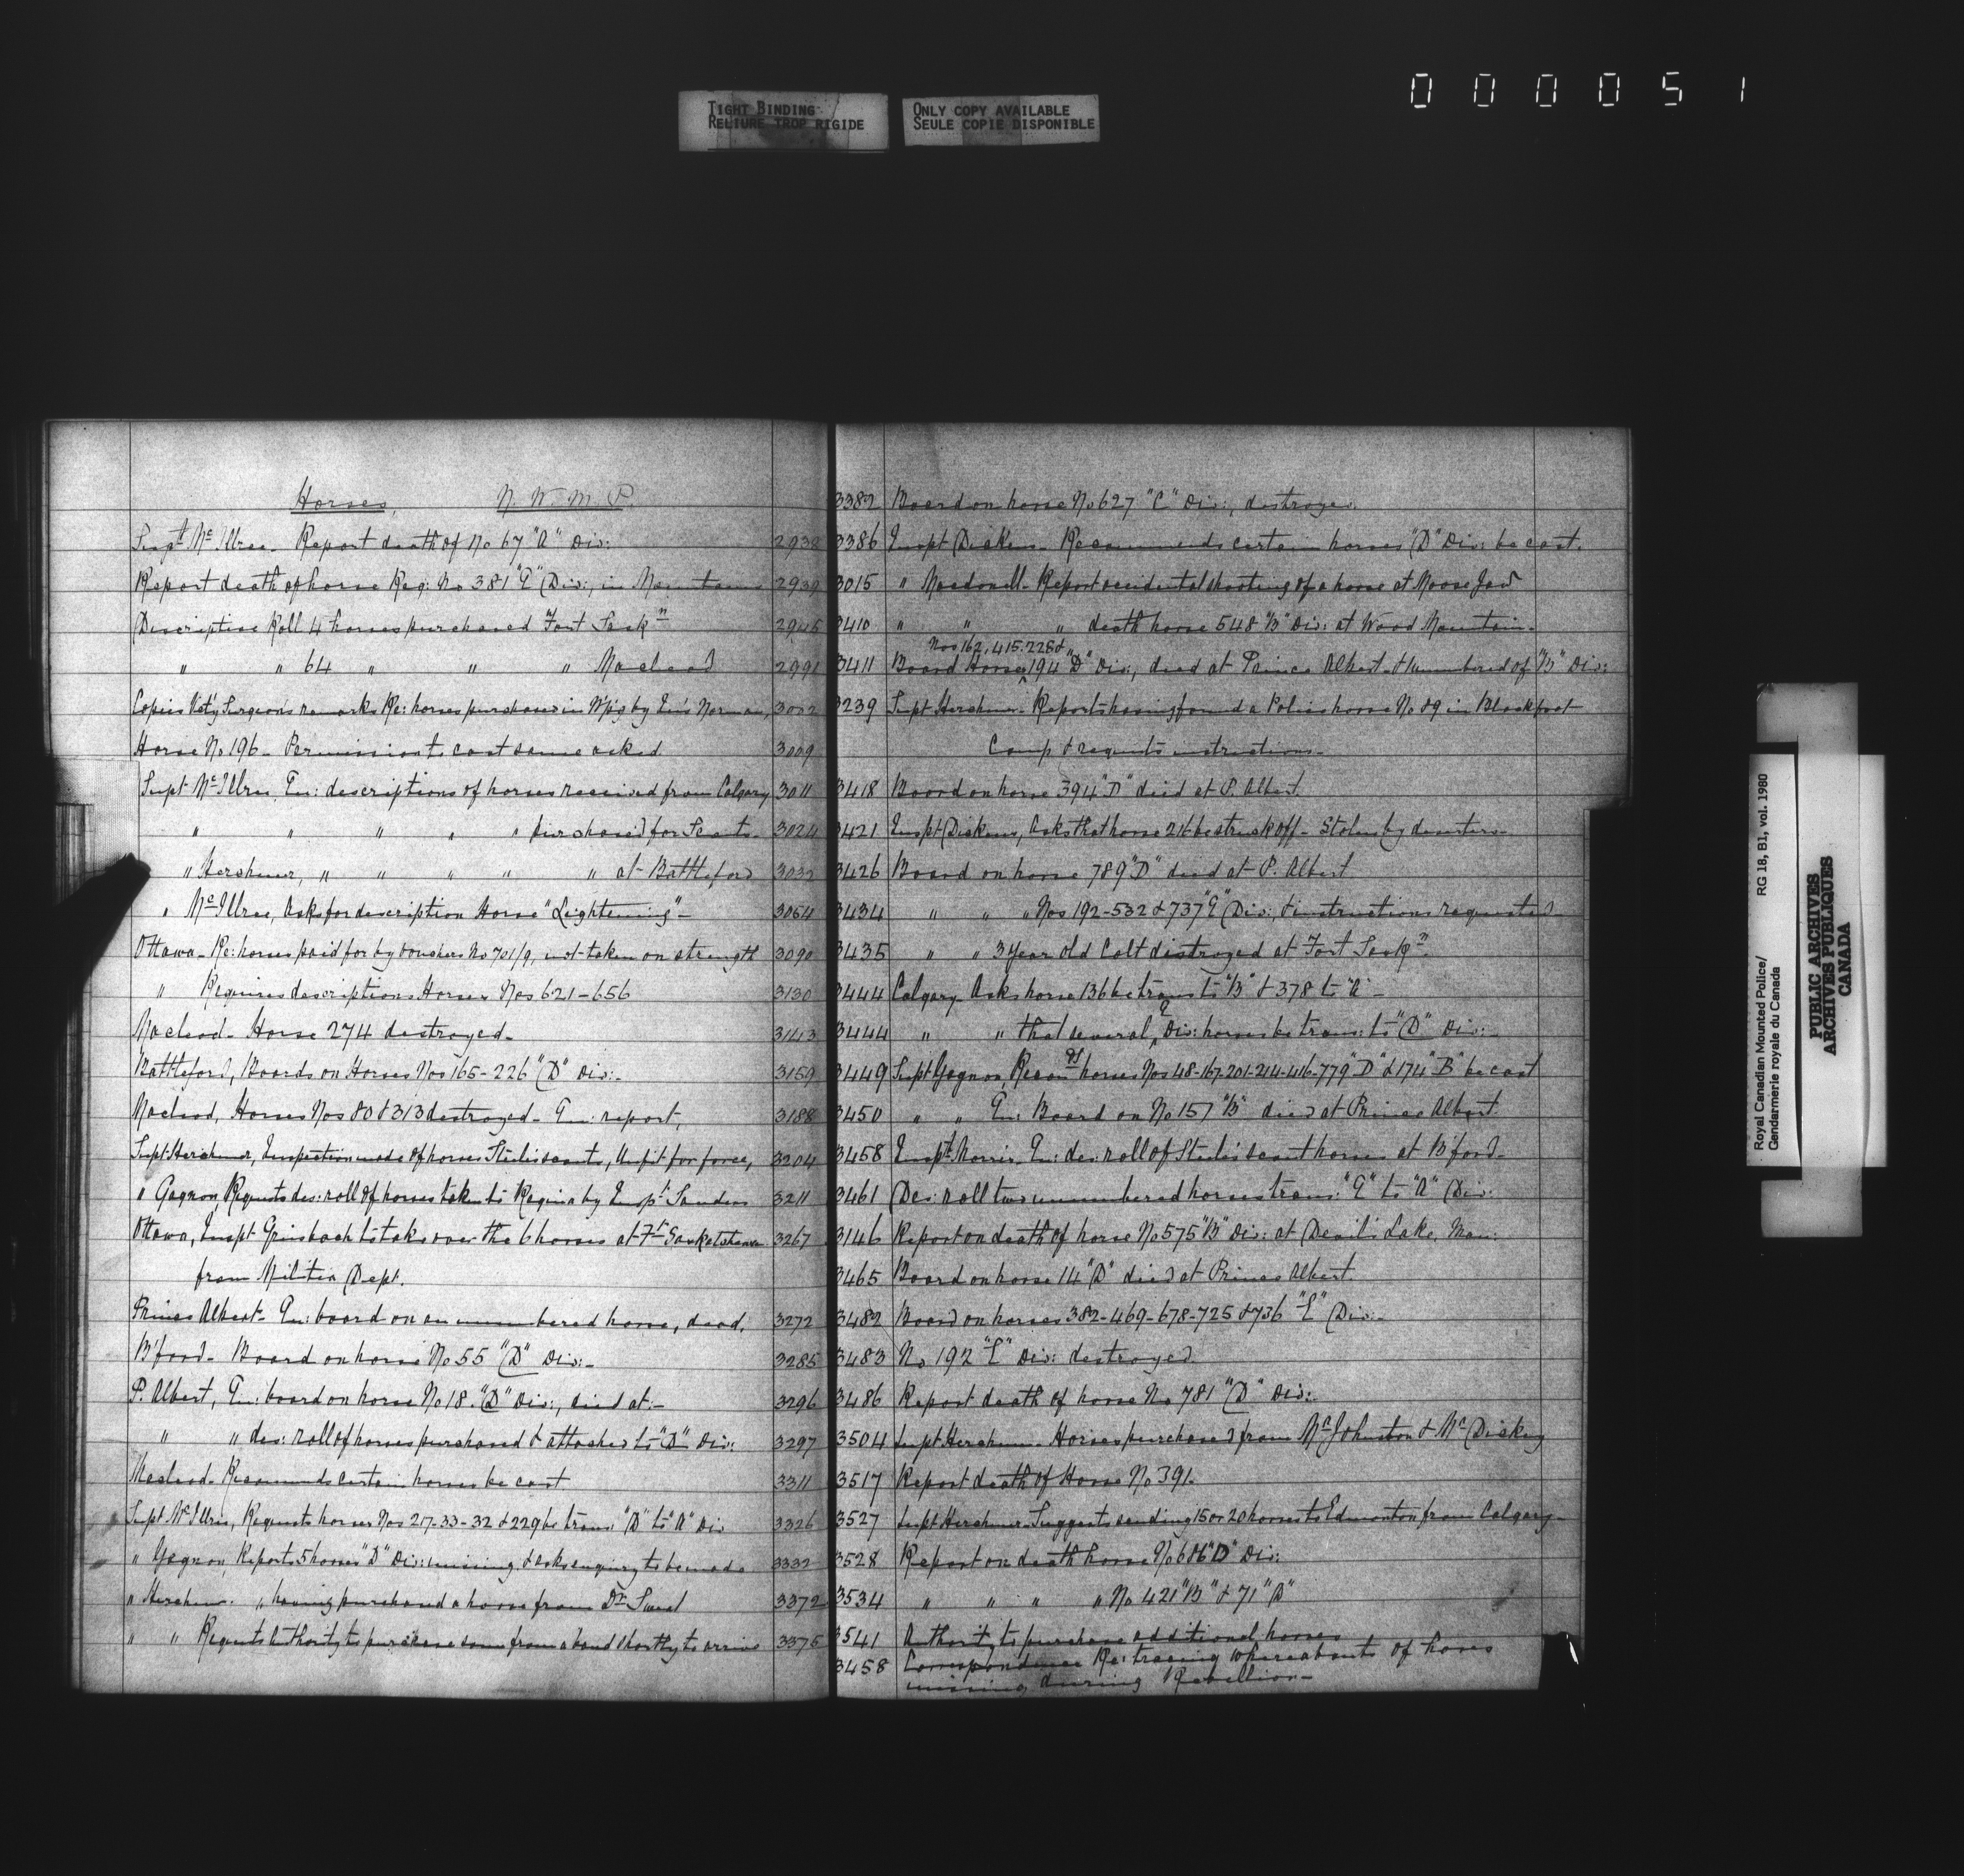 0 0 0 0 5 1
TIGHT BINDING
RELIURE TROP RIGIDE
ONLY COPY AVAILABLE
SEULE COPIE DISPONIBLE
Horses, N. W. M. P.
Supt McIllree - Report death of No 67 "A" Div: 2938
Report death of horse Reg: No 381 "E" Div:, in Mountains 2939
Descriptive Roll 4 horses purchased Fort Sask'n 2945
" " 64 " " " Macleod 2991
Copies Vet'y Surgeon's remarks Re: horses purchased in W'pig by Ins Norman, 3002
Horse No 196 - Permission to cast same asked 3009
Supt McIllree, En: descriptions of horses received from Calgary 3011
" " " " " purchased for Scouts - 3024
" Herchmer, " " " " " at Battleford 3032
" McIllree, Asks for description Horse "Lightening" - 3064
Ottawa - Re: horses paid for by vouchers No 701/9, not taken on strength 3090
" Requires descriptions Horses Nos 621-656 3130
Macleod - Horse 274 destroyed - 3143
Battleford, Boards on Horses Nos 165-226 "D" Div: - 3159
Macleod, Horses Nos 80 & 313 destroyed - En: report, 3188
Supt Herchmer, Inspection made of horses Steeles scouts, Unfit for force, 3204
" Gagnon, Requests des: roll of horses taken to Regina by Insp't Sanders 3211
Ottawa, Inspt Griesbach to take over the 6 horses at Ft Saskatchewan 3267
from Militia Dept.
Prince Albert - En: board on an unnumbered horse, dead, 3272
B'ford - Board on horse No 55 "D" Div: - 3285
P. Albert, En: board on horse No 18. "D" Div:, died at: - 3296
" " des: roll of horses purchased & attached to "D" Div: 3297
Macleod - Recommends certain horses be cast 3311
Supt McIllree, Requests horses Nos 217-33-32 & 229 be trans: "D" to "A" Div 3326
" Gagnon, Reports 5 horses "D" Div: missing & asks enquiry to be made 3332
" Herchmer - " having purchased a horse from Dr 3372
" " Requests Authority to purchase some from a band shortly to arrive 3375
3382 Board on horse No 627 "C" Div:, destroyed.
3386 Inspt Dickens - Recommends certain horses "D" Div: be cast.
3015 " Macdonell - Report accidental shooting of a horse at Moose Jaw
3410 " " " death horse 548 "B" Div: at Wood Mountain -
Nos 162, 415. 228 &
3411 Board Horses 194 "D" Div:, died at Prince Albert - & unnumbered of "B" Div:
3239 Supt Herchmer - Reports having found a Police horse No 89 in Blackfoot
Camp & requests instructions -
3418 Board on horse 394 "D" died at P. Albert.
3421 Inspt Dickens, Asks that horse 216 be struck off - Stolen by deserters -
3426 Board on horse 789 "D" died at P. Albert
3434 " " " Nos 192-532 & 737 "E" Div: & instructions requested
3435 " " 3 Year old Colt distroyed at Fort Sask'n -
3444 Calgary Asks horse 136 be trans to "B" & 378 to "A" -
3444 " " that several E Div: horses be trans: to "D" Div: -
3449 Supt Gagnon, Recom'ds horses Nos 48-167-201-214-416-779 "D" & 174 "B" be cast
3450 " " En: Board on No 157 "B" died at Prince Albert.
3458 Insp't Morris - En: des: roll of Steeles scout horses at B'ford -
3461 Des: roll two unnumbered horses trans: "E" to "A" Div:
3146 Report on death of horse No 575 "B" Div: at Devil's Lake, Man:
3465 Board on horse 14 "D" died at Prince Albert.
3482 Board on horses 382-469-678-725 & 736 "E" Div: -
3483 No 192 "E" Div: destroyed.
3486 Report death of horse No 781 "D" Div:
3504 Supt Herchmer - Horses purchased from Mr Johnston & Mr Dickey
3517 Report death of Horse No 391 -
3527 Supt Herchmer - Suggests sending 15 or 20 horses to Edmonton from Calgary -
3528 Report on death horse No 686 "D" Div:
3534 " " " " No 421 "B" & 71 "D"
3541 Authority to purchase additional horses
3458 Correspondence Re: tracing whereabouts of horses
missing during Rebellion -
Royal Canadian Mounted Police/ RG 18, B1, vol. 1980
Gendarmerie royale du Canada
PUBLIC ARCHIVES
ARCHIVES PUBLIQUES
CANADA